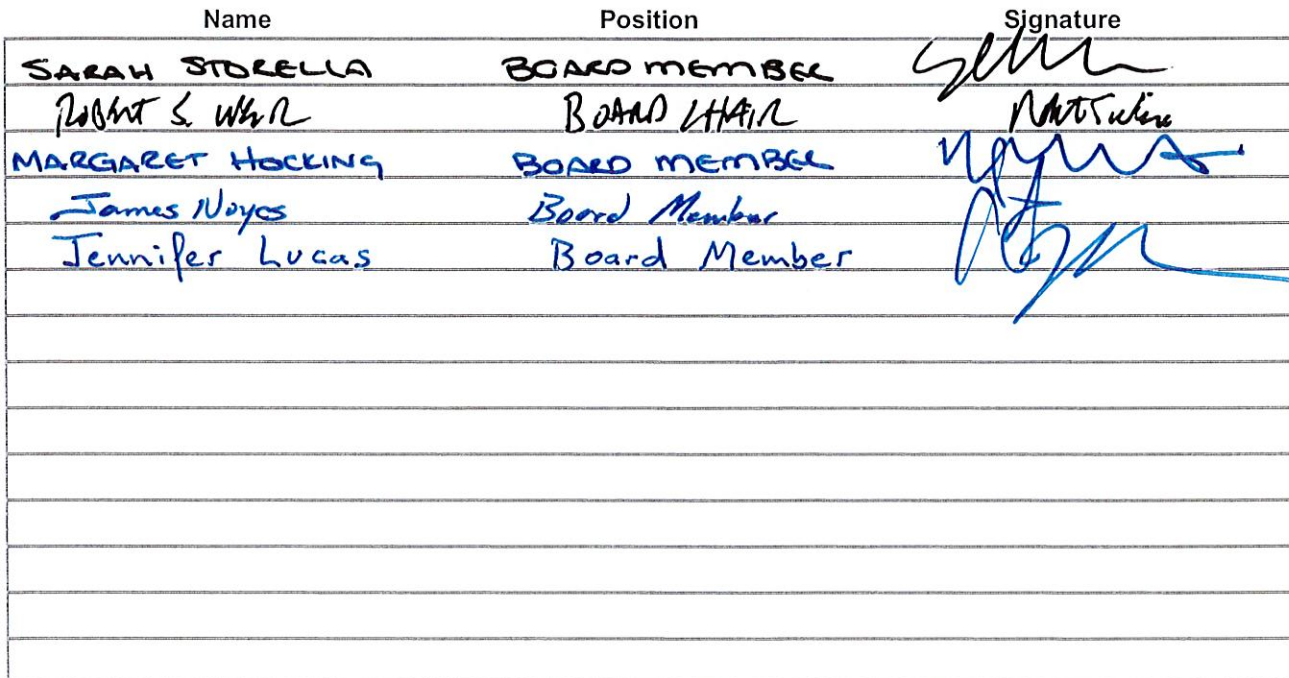 Name Position Signature
SARAH STORELLA BOARD MEMBER
ROBERT S. BOARD CHAIR
MARGARET HOCKING BOARD MEMBER
James Noyes Board Member
Jennifer Lucas Board Member